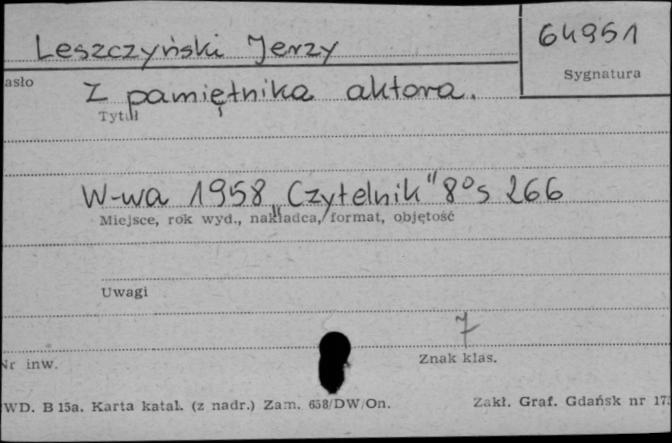 Leszczyński Jerzy
64951
asło
Sygnatura
Z pamiętnika aktora.
Tytuł
W-wa 1958 „Czytelnik" 8° s 266
Miejsce, rok wyd., nakładca, format, objętość
Uwagi
7
Nr inw.
Znak klas.
WD. B 15a. Karta katal. (z nadr.) Zam. 658/DW/On.
Zakł. Graf. Gdańsk nr 173